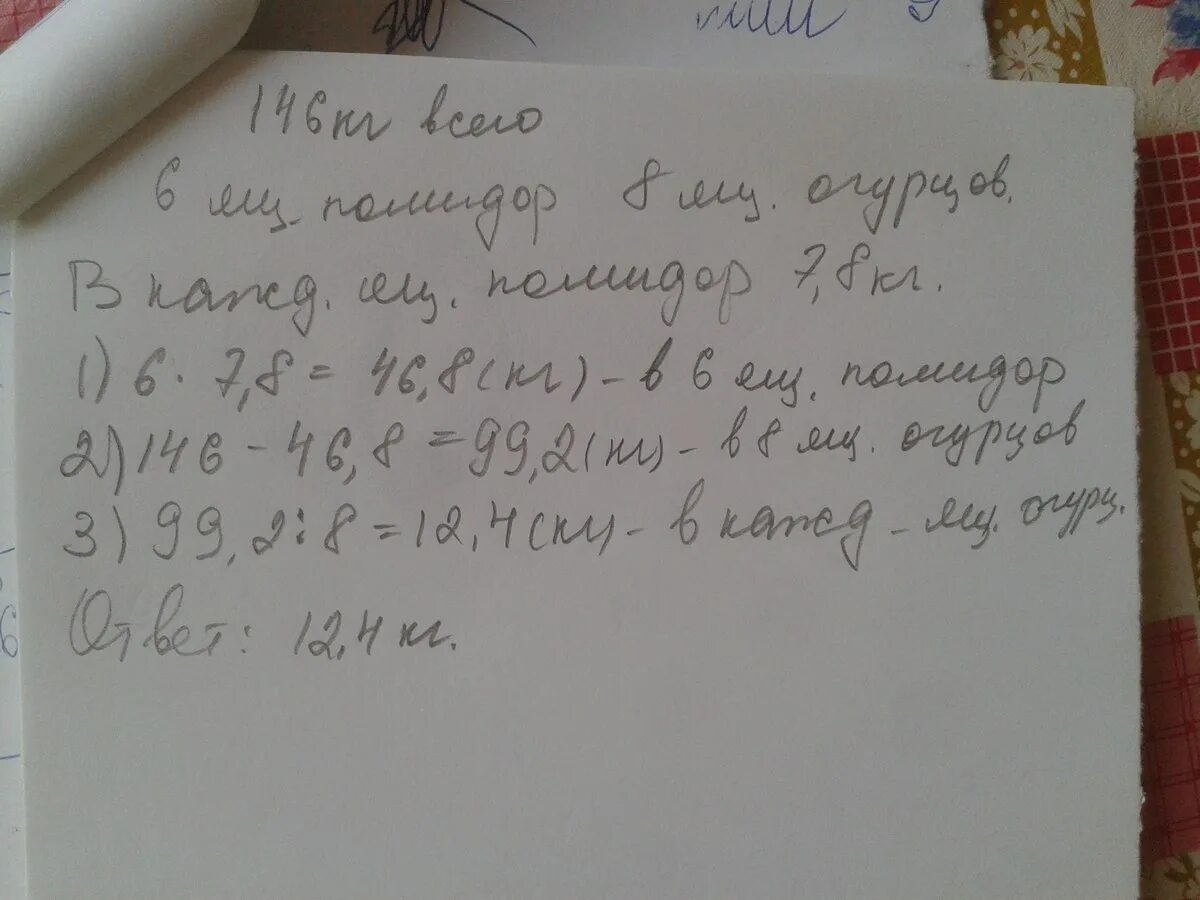 146кг всего
6 ящ. помидор 8 ящ. огурцов.
В кажд. ящ. помидор 7,8кг.
1) 6 · 7,8 = 46,8(кг) – в 6 ящ. помидор
2) 146 – 46,8 = 99,2(кг) – в 8 ящ. огурцов
3) 99,2 : 8 = 12,4(кг) – в кажд – ящ. огурц.
Ответ: 12,4 кг.